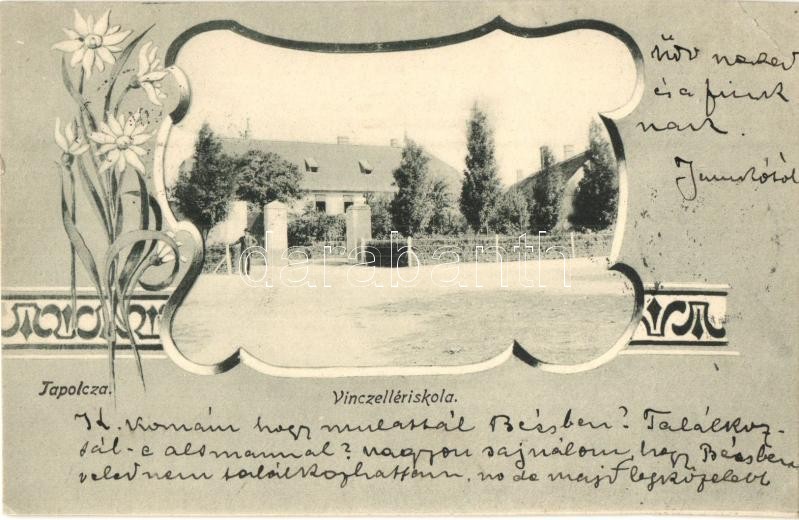 Üdv neked
és a
nak.
darabanth
Tapolcza.
Vinczellériskola.
K. Komám hogy mulattál Bécsben? Találkoz-
tál-e alsmannal? nagyon sajnálom, hogy Bécsben
veled nem találkozhattam, no de majd legközelebb